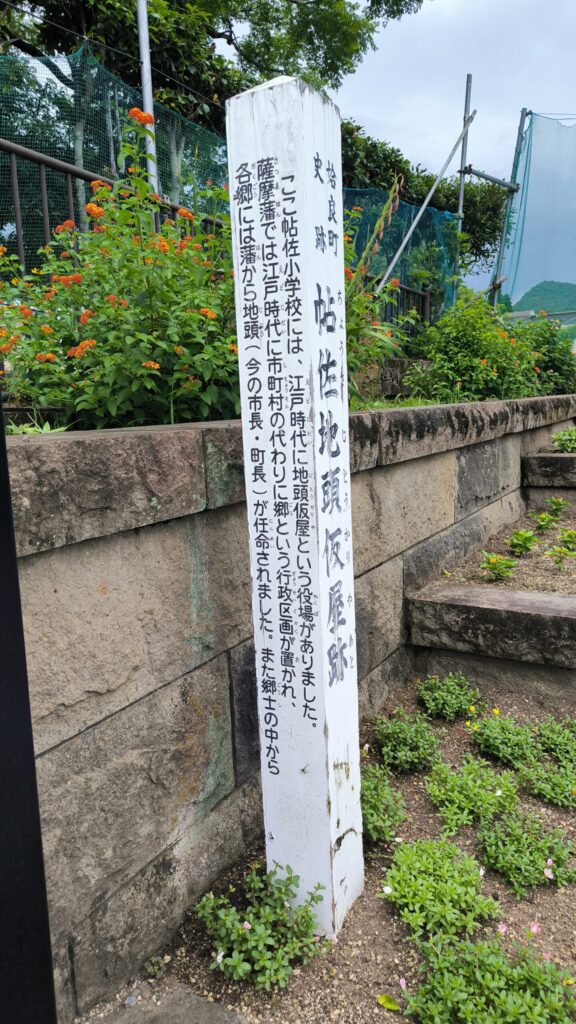 姶良町
史跡
帖佐地頭仮屋跡
ちょうさじとうかりやあと
ここ帖佐小学校には、江戸時代に地頭仮屋という役場がありました。
薩摩藩では江戸時代に市町村の代わりに郷という行政区画が置かれ、
各郷には藩から地頭(今の市長・町長)が任命されました。また郷士の中から